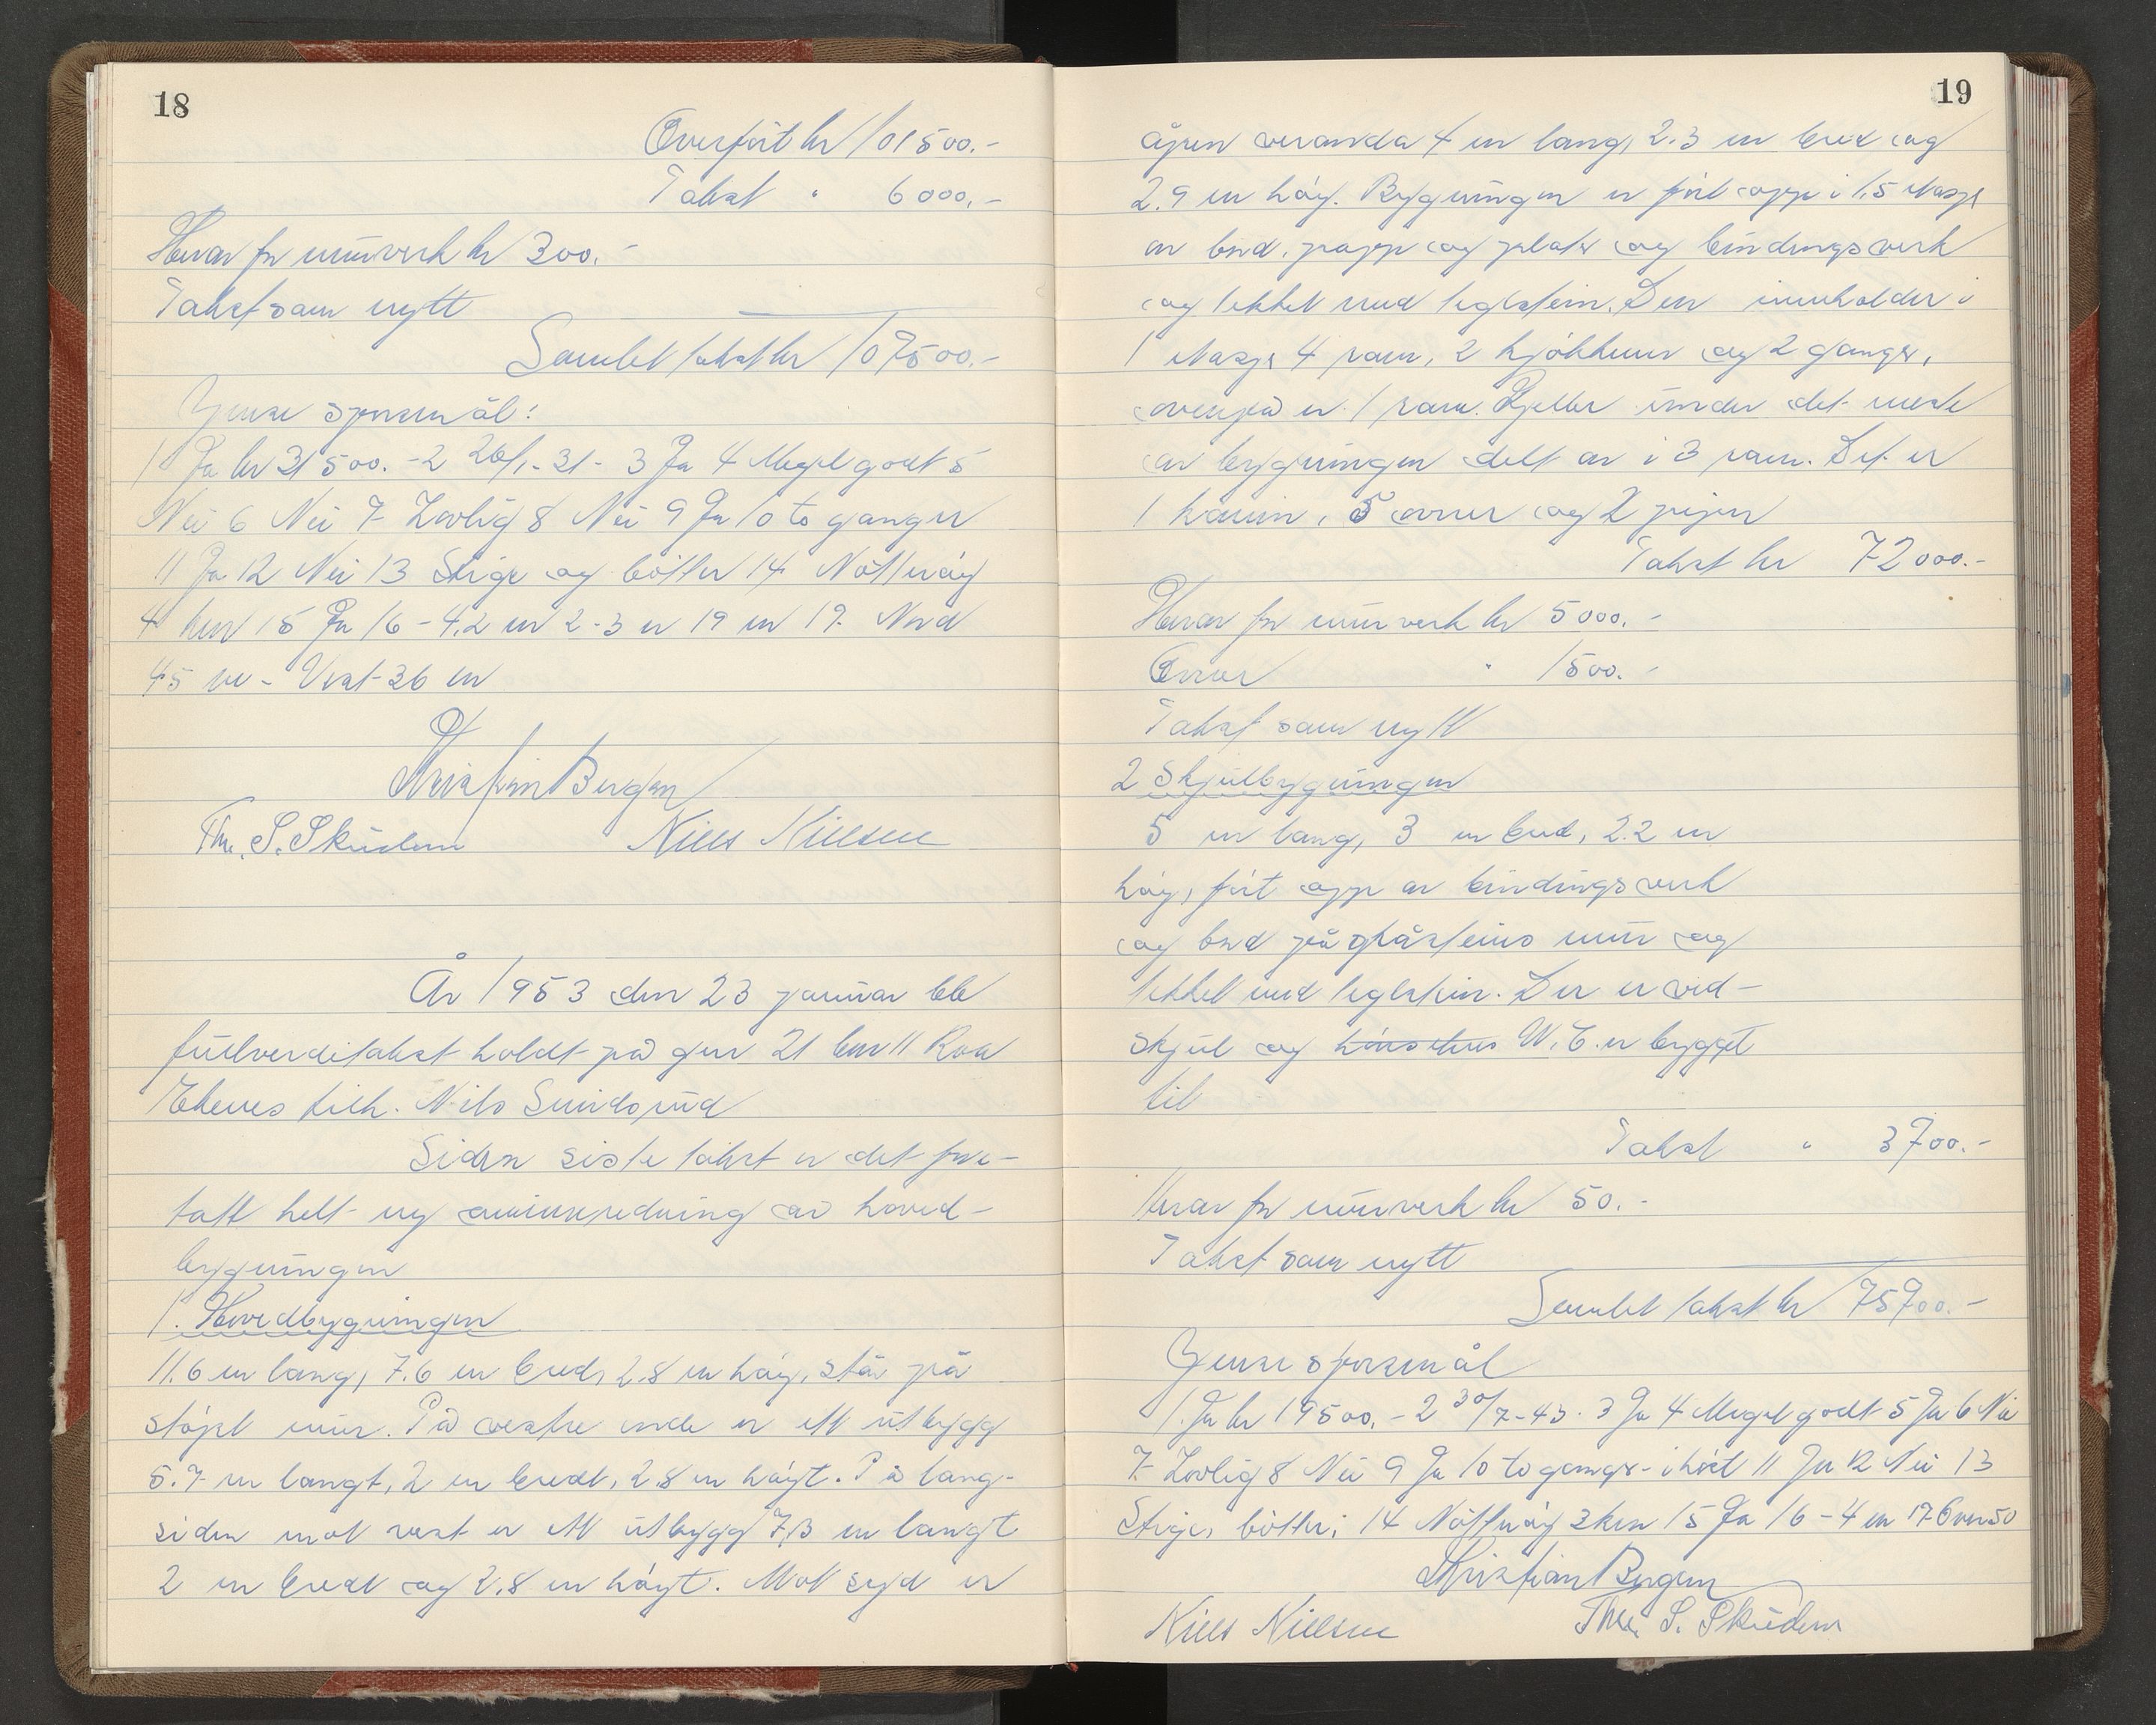 18
Overført kr 101500.-
Takst " 6000.-
Herav for murverk kr 300.-
Takst som nytt
Samlet takst kr 107500.-
Ymse spørsmål:
1 Ja kr 31500.- 2 26/1-31- 3 Ja 4 Meget godt 5
Nei 6 Nei 7 Lovlig 8 Nei 9 Ja 10 to ganger
11 Ja 12 Nei 13 Stige og bøtter 14 Nøtterøy
4 km 15 Ja 16 - 4,2 m 2-3 er 19 m 17 Nord
45 m - Vest 36 m
Kristian Bergan
Th. S. Skudem Niels Nielsen
År 1953 den 23 januar ble
fullverditakst holdt på gnr 21 bnr 11 Roa
Ekenes tilh. Nils Sundsrud
Siden siste takst er det fore-
tatt helt ny ominnredning av hoved-
bygningen
1. Hovedbygningen
11.6 m lang, 7.6 m bred, 2.8 m høy, står på
støpt mur. På vestre ende er ett utbygg
5.7 m langt, 2 m bredt, 2.8 m høyt. På lang-
siden mot vest er ett utbygg 7,3 m langt
2 m bredt og 2.8 m høyt. Mot syd er
19
åpen veranda 4 m lang, 2.3 m bred og
2.9 m høy. Bygningen er ført opp i 1,5 etasje
av bord, papp og plater og bindingsverk
og tekket med teglstein. Den inneholder i
1 etasje 4 rom, 2 kjøkkener og 2 ganger,
ovenpå er 1 rom. Kjeller under det meste
av bygningen delt av i 3 rom. Det er
1 kamin, 5 ovner og 2 piper
Takst kr 72000.-
Herav for murverk kr 5000.-
Ovner " 1500.-
Takst som nytt
2 Skjulbygningen
5 m lang, 3 m bred, 2.2 m
høy, ført opp av bindingsverk
og bord på gråsteins mur og
tekket med teglstein. Der er ved-
skjul og W.C. er bygget
til
Takst " 3700.-
Herav for murverk kr 50.-
Takst som nytt
Samlet takst kr 75700.-
Ymse spørsmål
1. Ja kr 19500.- 2 30/7-43. 3 Ja 4 Meget godt 5 Ja 6 Nei
7 Lovlig 8 Nei 9 Ja 10 to ganger i året 11 Ja 12 Nei 13
Stige, bøtter, 14 Nøtterøy 3 km 15 Ja 16 - 4 m 17 Over 50
Kristian Bergan
Niels Nielsen Th. S. Skudem